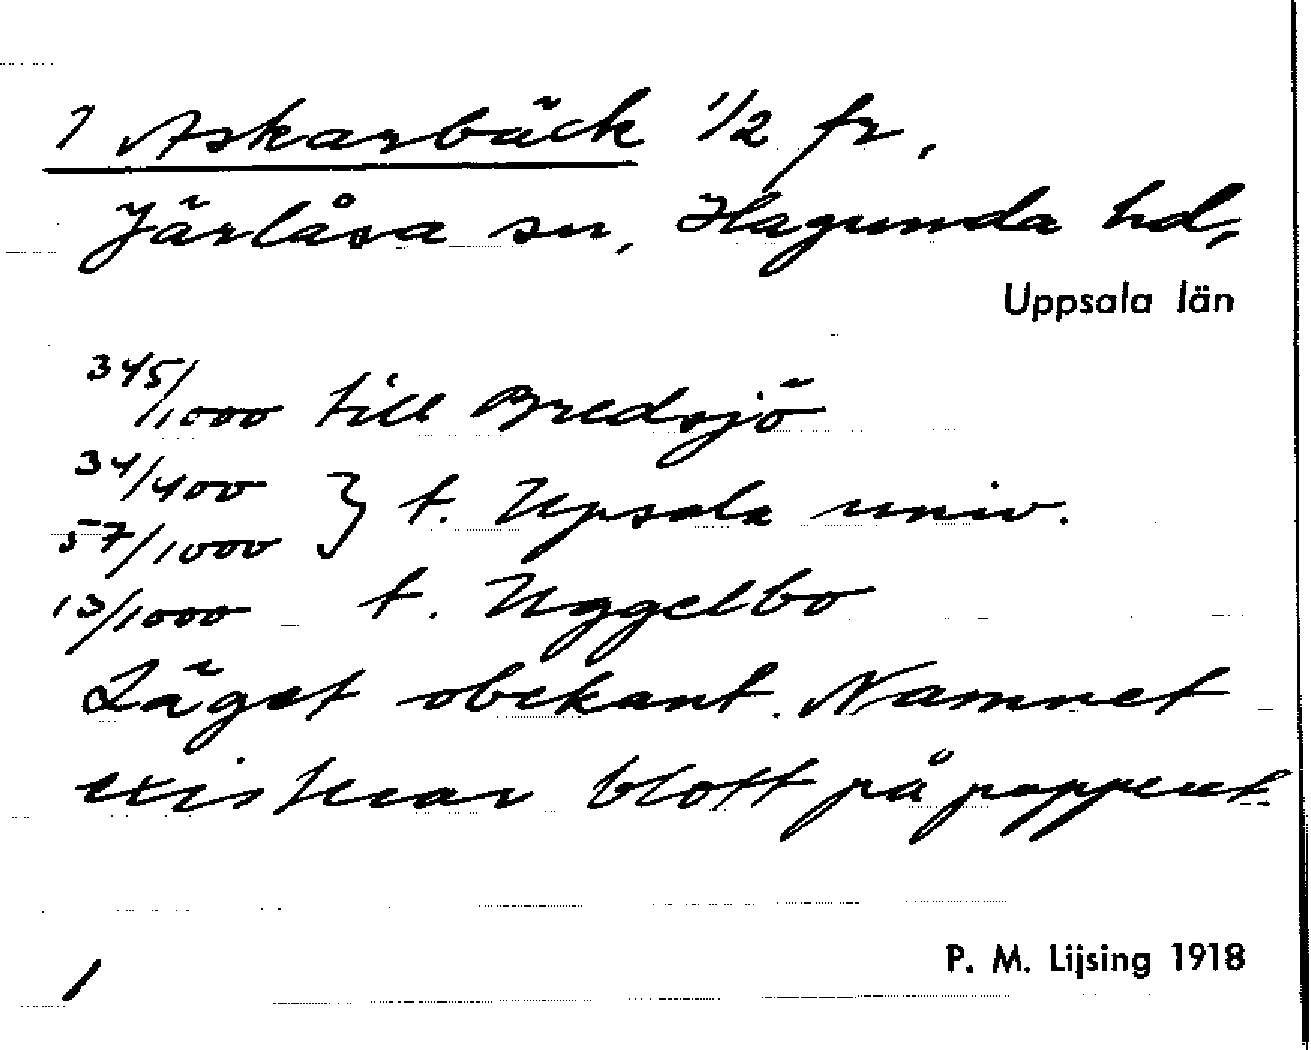 1 Askarbäck 1/2 fr,
Järlåsa sn, Hagunda hd,
Uppsala län
345/1000 till Bredsjö
34/400 } t. Upsala univ.
57/1000
13/1000 t. Uggelbo
Läget obekant. Namnet
existerar blott på pappret
P. M. Lijsing 1918
1